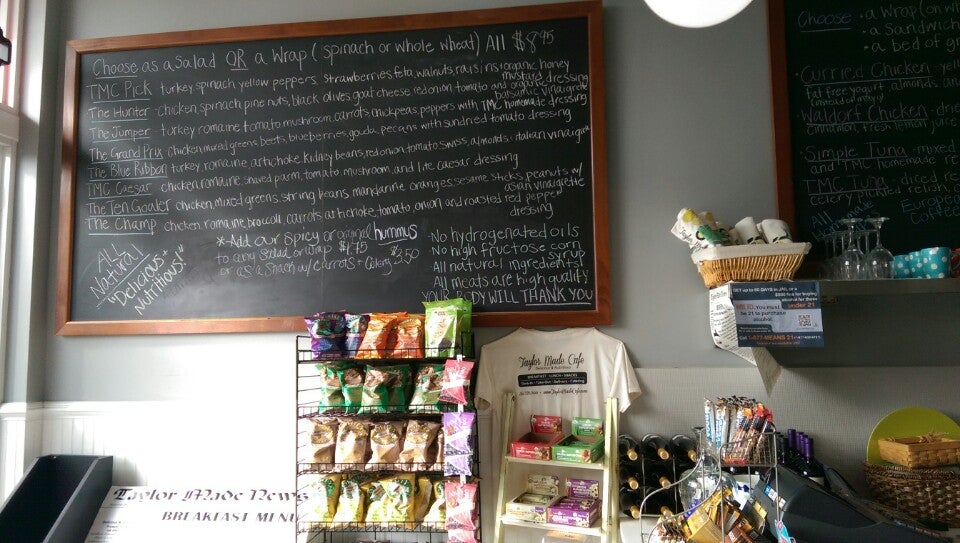 Choose as a Salad OR a Wrap ( spinach or whole wheat) All $8.95
TMC Pick turkey, spinach, yellow peppers, strawberries, feta, walnuts, raisins, organic honey mustard dressing
The Hunter - chicken, spinach, pine nuts, black olives, goat cheese, red onion, tomato and organic balsamic vinaigrette
The Jumper - turkey, romaine, tomato, mushroom, carrots, chickpeas, peppers with TMC homemade dressing
The Grand Prix chicken, mixed greens, beets, blueberries, gouda, pecans with sundried tomato dressing
The Blue Ribbon turkey, romaine, artichoke, kidney beans, red onion, tomato, swiss, almonds, italian vinaigrette
TMC Caesar - chicken, romaine, shaved parm, tomato, mushroom, and lite caesar dressing
The Ten Goaler chicken, mixed greens, string beans, mandarine oranges, sesame sticks, peanuts w/ asian vinaigrette
The Champ - chicken, romaine, broccoli, carrots, artichoke, tomato, onion and roasted red pepper dressing
ALL Natural
"Delicious + Nutritious!"
*Add our spicy or original hummus
to any salad or wrap $1.75
or as a snack w/ carrots + celery $3.50
·No hydrogenated oils
No high fructose corn syrup
All natural ingredients
All meats are high quality
YOUR BODY WILL THANK YOU
Choose · a wrap (on wh
· a sandwich
· a bed of gr
Curried Chicken
fat free yogurt, almonds
Waldorf Chicken
cinnamon, fresh lemon juice
Simple Tuna - mixed
and TMC homemade
TMC Tuna
celery
Europe
Coffee
Taylor Made Cafe
BREAKFAST · LUNCH · SNACKS
under 21
Taylor Made News
BREAKFAST MENU